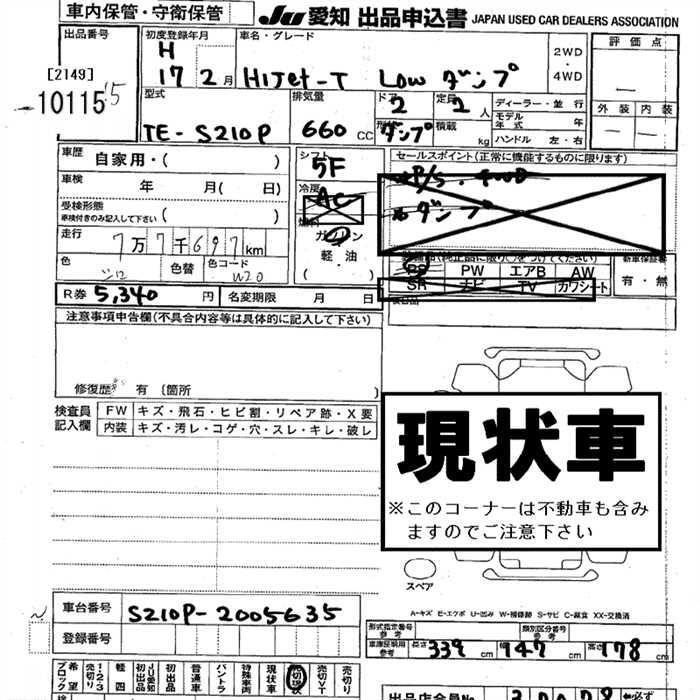 車内保管・守衛保管
JU 愛知 出品申込書 JAPAN USED CAR DEALERS ASSOCIATION
出品番号
[2149]
10115
初度登録年月
H
17 2月
車名・グレード
HIJet-T Low ダンプ
2WD
・
4WD
評価点
外装 内装
型式
TE-S210P
排気量
660 CC
ドア
2
定員
2 人
ダンプ
積載
kg
ディーラー・並行
モデル年式 年
ハンドル 左・右
車歴 自家用・( )
車検 年 月( 日)
受検形態
車検付きのみ記入して下さい ( )
走行 7万7千697km
色 シロ
色替
色コード W20
シフト
5F
冷房
AC
燃料
ガソリン
軽・油
( )
セールスポイント(正常に機能するものに限ります)
P/S・4WD
ダンプ
装備品(純正品に限り○をつけてください)
PS PW エアB AW
SR ナビ TV カワシート
新車保証書
有・無
R券 5,340 円 名変期限 月 日
注意事項申告欄(不具合内容等は具体的に記入して下さい)
修復歴 有 〔箇所 〕
検査員記入欄
FW キズ・飛石・ヒビ割・リペア跡・X要
内装 キズ・汚レ・コゲ・穴・スレ・キレ・破レ
現状車
※このコーナーは不動車も含みますのでご注意下さい
スペア
A-キズ E-エクボ U-凹み W-補修跡 S-サビ C-腐食 XX-交換済
車台番号 S210P-2005635
登録番号
型式指定番号 参考
類別区分番号 参考
車庫証明用 参考 長さ 339 cm 幅 147 cm 高さ 178 cm
希望ブロック
1・2・3売切り
軽四
JU愛知初出品
初出品
普通車
バントラ
特殊車両
現状車
売切現状
売切りYT
売切り
出品店会員No.